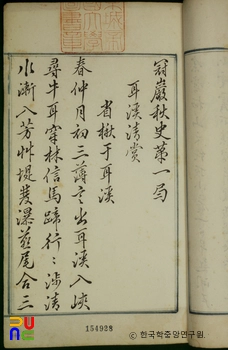 冠巖秋史第一局
耳溪清賞
省楸于耳溪
春仲月初三薄言出耳溪入峽
尋牛耳穿林信馬蹄行〻涉清
水漸入芳艸堤雙瀑燕尾合三
154928
ⓒ 한국학중앙연구원